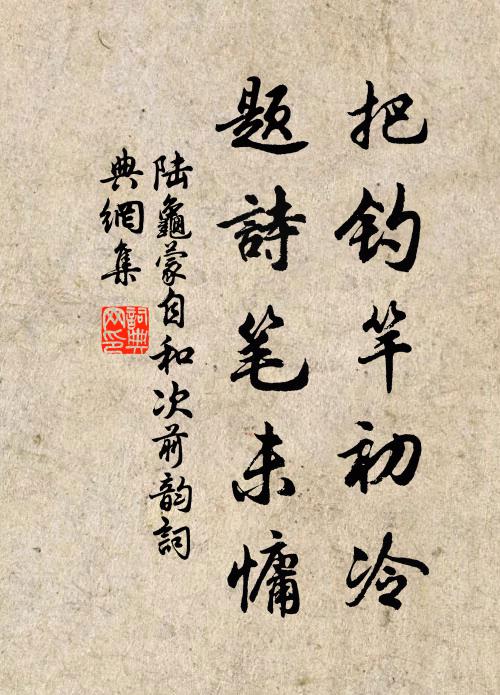 把钓竿初冷
题詩笔未慵
陆龜蒙自和次前韵詞
典網集
詞典网印